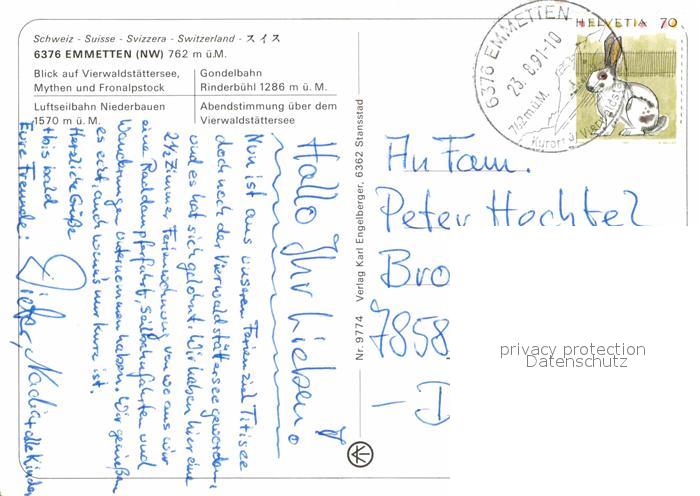 Schweiz - Suisse - Svizzera - Switzerland - スイス
6376 EMMETTEN (NW) 762 m ü.M.
Blick auf Vierwaldstättersee,
Mythen und Fronalpstock
Gondelbahn
Rinderbühl 1286 m ü. M.
Luftseilbahn Niederbauen
1570 m ü. M.
Abendstimmung über dem
Vierwaldstättersee
6376 EMMETTEN
23.8.91-10
762 m ü.M.
Kurort
HELVETIA 70
Hallo Ihr Lieben!
Nun ist aus unserem Ferienziel Titisee
doch noch der Vierwaldstättersee geworden,
und es hat sich gelohnt. Wir haben hier eine
2½ Zimmer Ferienwohnung von wo aus wir
eine Raddampferfahrt, Seilbahnfahrten und
Wanderungen unternommen haben. Wir genießen
es echt, auch wenn's nur kurz ist.
Herzliche Grüße
+ bis bald
Eure Freunde: Dieter, Nadia + alle Kinder
Nr. 9774 Verlag Karl Engelberger, 6362 Stansstad
An Fam.
Peter Hochtel
Bro
7858
- D
privacy protection
Datenschutz